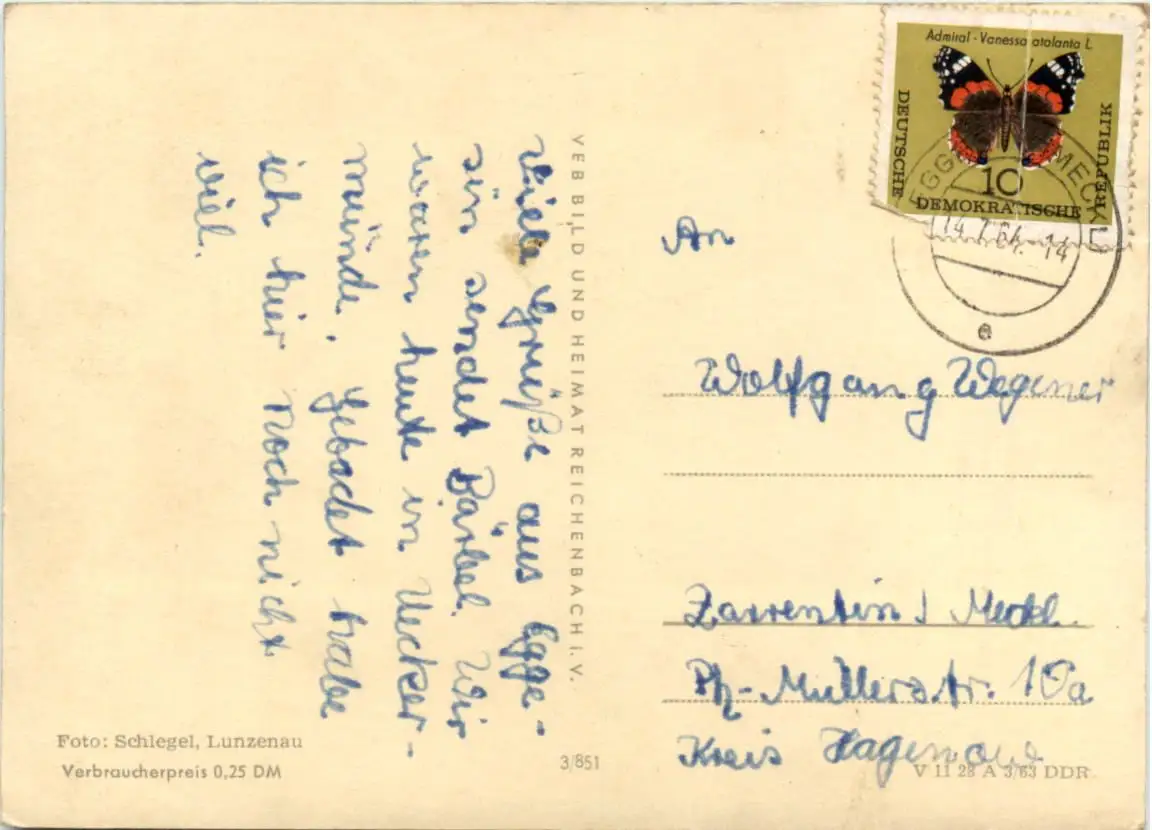 Viele Grüße aus Egge-
sin sendet Bärbel. Wir
waren heute in Uecker-
münde. Gebadet habe
ich hier noch nicht
viel.
VEB BILD UND HEIMAT REICHENBACH I. V.
Foto: Schlegel, Lunzenau
Verbraucherpreis 0,25 DM
3/851
Admiral · Vanessa atalanta L.
DEUTSCHE
DEMOKRATISCHE
REPUBLIK
10
14.7.64. 14
e
An
Wolfgang Wegener
Zarrentin / Meckl.
Ph-Müllerstr. 10a
Kreis Hagenow
V 11 28 A 3/63 DDR